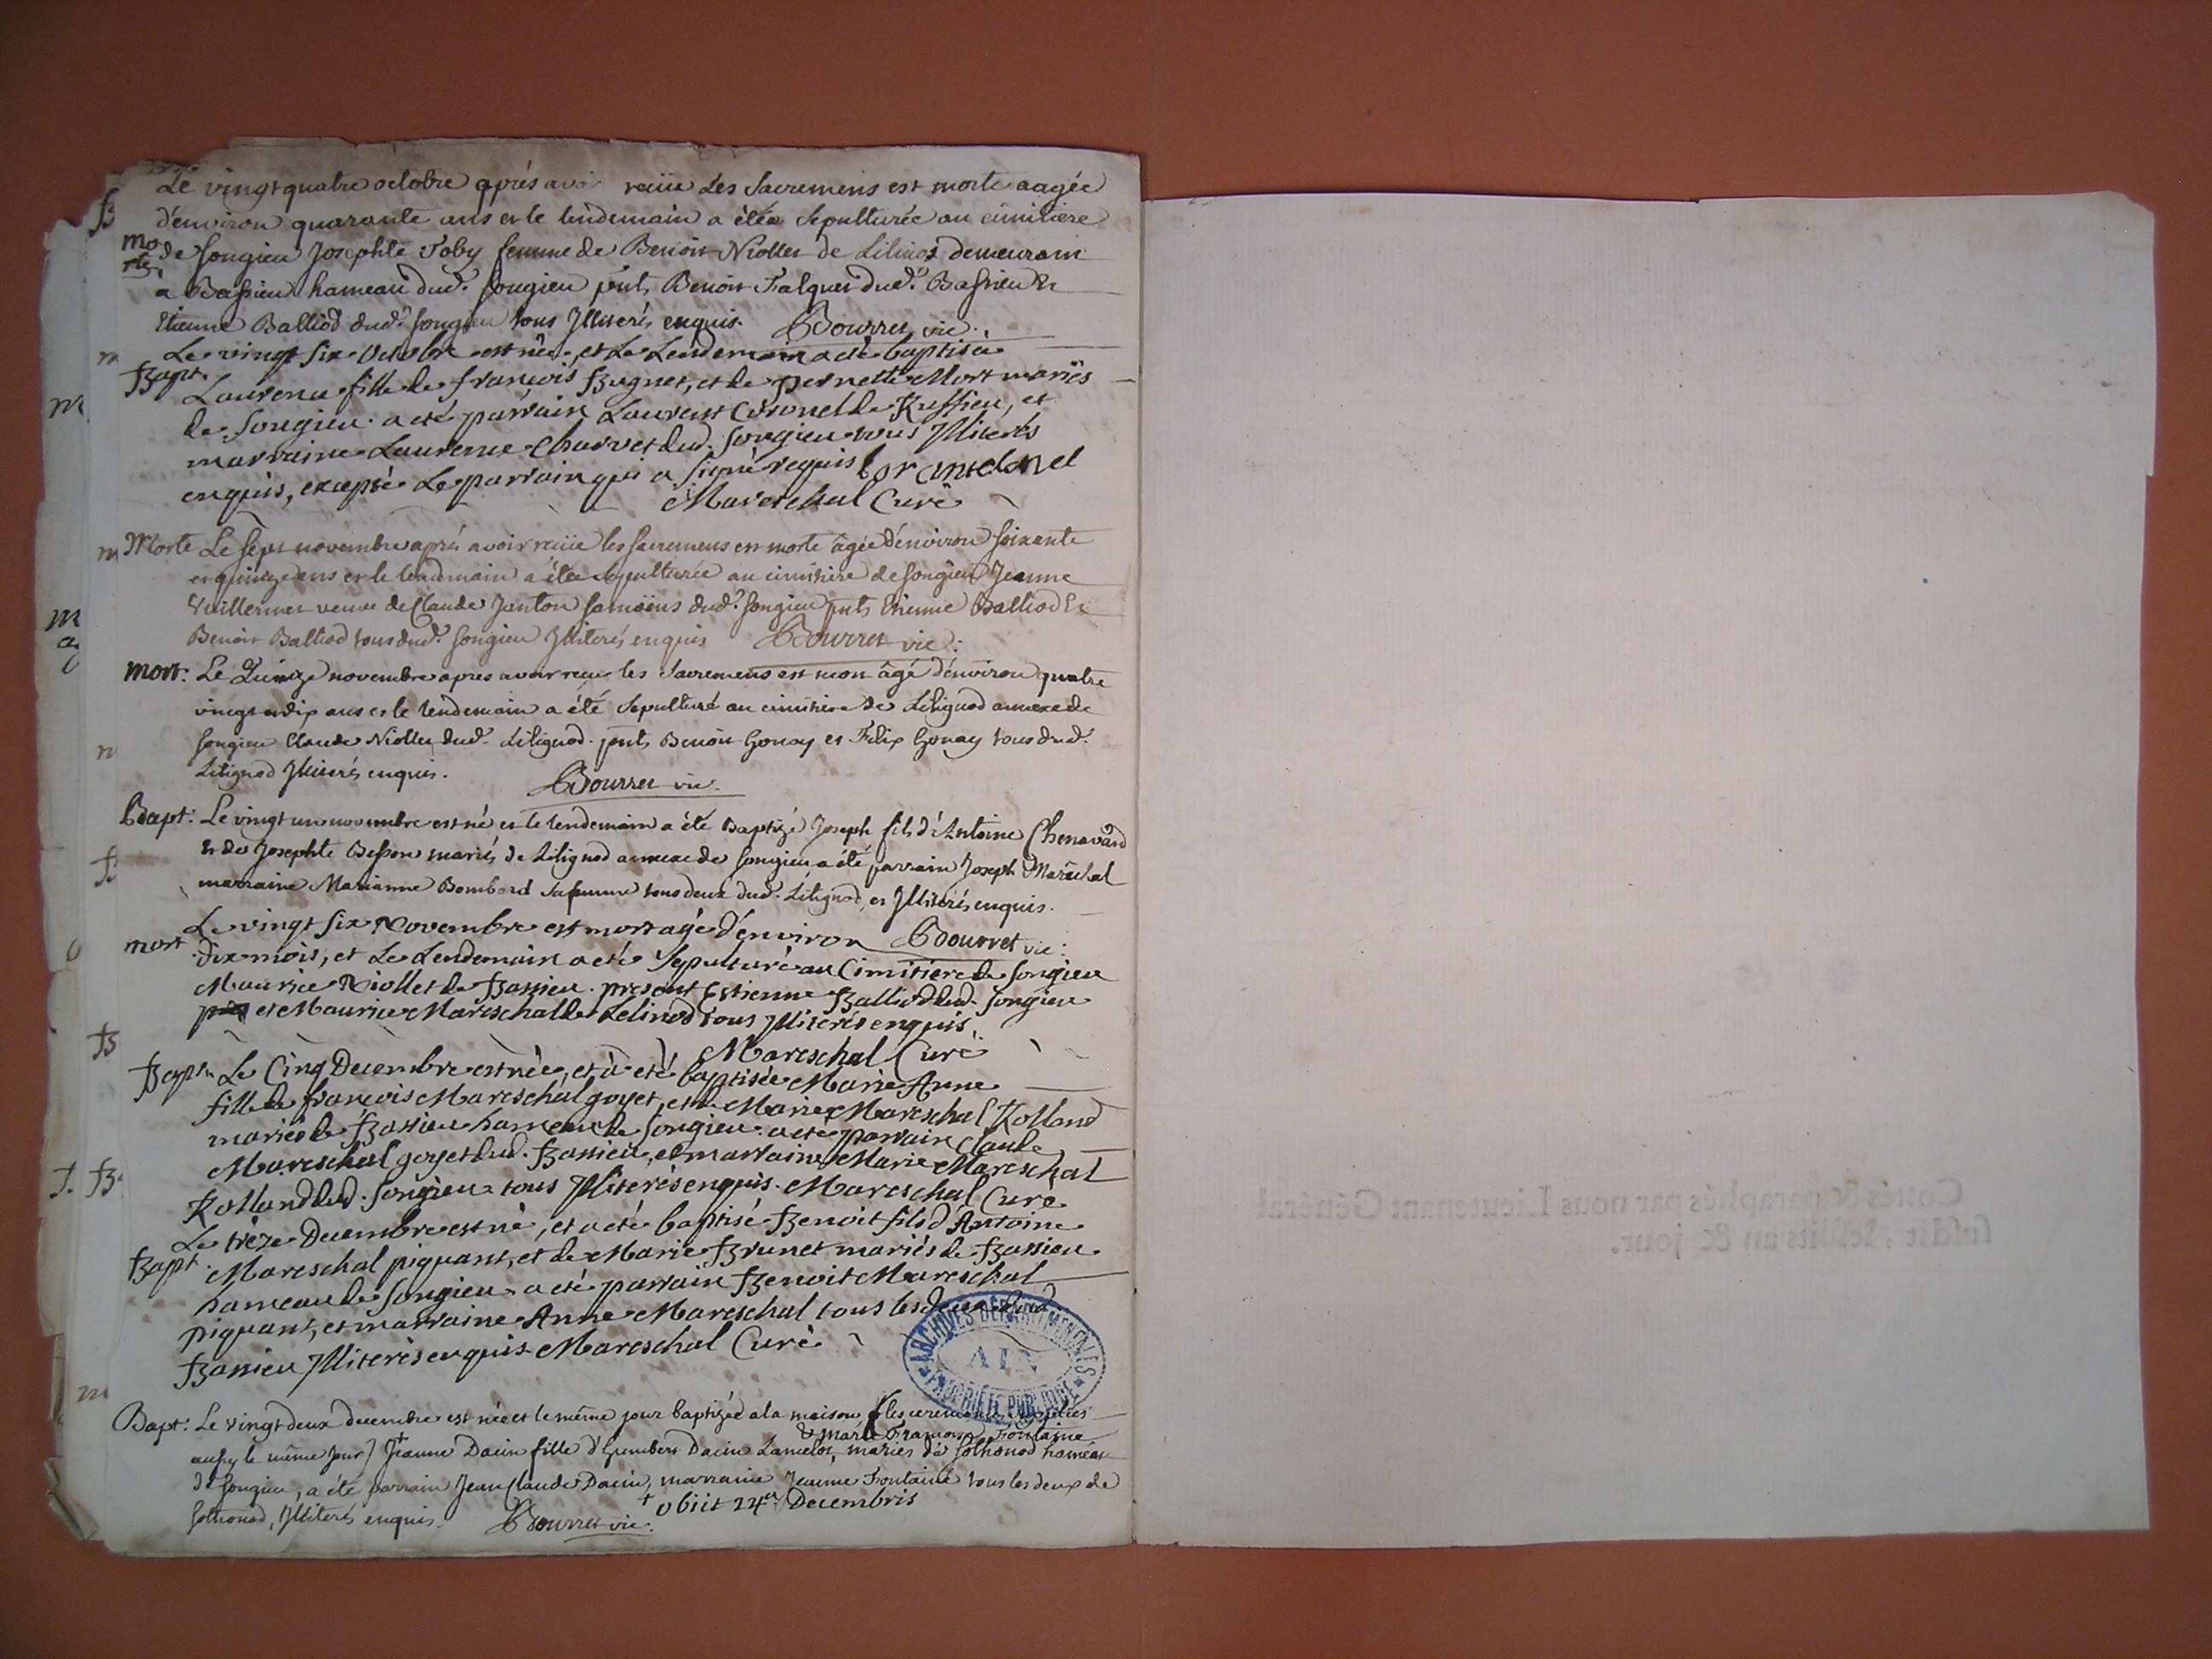 Le vingt quatre octobre aprés avoir reciie Les Sacremens est morte aagée
d'environ quarante ans et le lendemain a étée Sepulturée au cimitiere
mo
rte
de Songieu Josephte Toby femme de Benoit Niollet de Lilinod demeurant
a Bassieu hameau dud. Songieu pnts Benoit Falquet dud. Bassieu Et
Etienne Balliod dud. Songieu tous Jlliterés enquis. Bourret vic.
Bapt. Le vingt six octobre est née, et Le Lendemain a eté baptisée
Laurence fille de françois Bugnet, et de pernette Mort mariés
de Songieu. a eté parrain Laurent Cosonel de Ruffieu, et
marraine Laurence Charvet dud. Songieu tous Jlliterés
enquis, excepté Le parrain qui a signé requis
Mareschal Curé
Morte Le sept novembre aprés avoir reciie les sacremens est morte âgée d'environ soixante
et quinze ans et le lendemain a étée sepulturée au cimitiere de Songieu Jeanne
Vuillermet veuve de Claude Janton dud. Songieu pnts Etienne Balliod Et
Benoit Balliod tous dud. Songieu Jlliterés enquis Bourret vic:
mort: Le Quinze novembre apres avoir recu les Sacremens est mort âgé d'environ quatre
vingt et dix ans et le lendemain a été Sepulturé au cimitiere de Litignod annexe de
Songieu Claude Niollet dud. Litignod. pnts Benoit Gonay et Felix Gonay tous dud.
Litignod Jlliterés enquis. Bourret vic.
Bapt: Le vingt un novembre est né et le lendemain a été Baptizé Joseph fils d'Antoine Chenavard
et de Josephte Besson mariés de Litignod annexe de Songieu a été parrain Joseph Maréchal
marraine Marianne Bombord sa femme tous deux dud. Litignod, et Jlliterés enquis.
Bourret vic:
mort Le vingt six Novembre est mort agé d'environ
dix mois, et Le Lendemain a eté Sepulturé au Cimitiere de Songieu
Maurice Niollet de Bassieu. present Estienne Balliod dud. Songieu
et Maurice Mareschal de Lelinod tous Jlliterés enquis.
Mareschal Curé
Bapt. Le Cinq Decembre est née, et a eté baptisée Marie Anne
fille de françois Mareschal goyet, et de Marie Mareschal Rolland
mariés de Bassieu hameau de Songieu. a eté parrain Claude
Mareschal goyet dud. Bassieu, et marraine Marie Mareschal
Rolland dud. Songieu tous Jlliterés enquis. Mareschal Curé
Bapt. Le trèze Decembre est né, et a eté baptisé Benoit fils d'Antoine
Mareschal piquant, et de Marie Brunet mariés de Bassieu
hameau de Songieu. a eté parrain Benoit Mareschal
piquant, et marraine Anne Mareschal tous les deux dud.
Bassieu Jlliterés enquis Mareschal Curé
ARCHIVES DÉPARTEMENTALES
AIN
PROPRIÉTÉ PUBLIQUE
Bapt: Le vingt deux decembre est née et le même jour baptizée a la maison (les ceremonies supplées
& Marie Françoise Fontaine
aussy le même jour) Jeanne Dacin fille d'Humbert Dacin Lancelot, mariés de Sothonod hameau
de Songieu, a été parrain Jean Claude Dacin, marraine Jeanne Fontaine tous les deux de
Sothonod, Jlliterés enquis. Bourret vic: + obiit 24a Decembris
Cottés & paraphés par nous Lieutenant Général
susdit, lesdits an & jour.